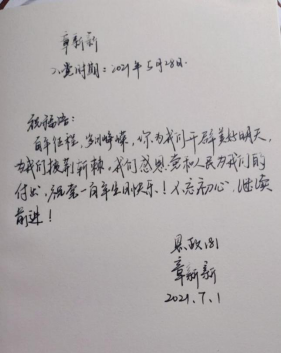 章新新
入党时期：2021年5月28日.
祝福语：
百年征程，岁月峥嵘，你为我们开辟美好明天，
为我们披荆斩棘，我们感恩党和人民为我们的
付出，祝党一百年生日快乐！不忘初心，继续
前进！
章新新
2021.7.1